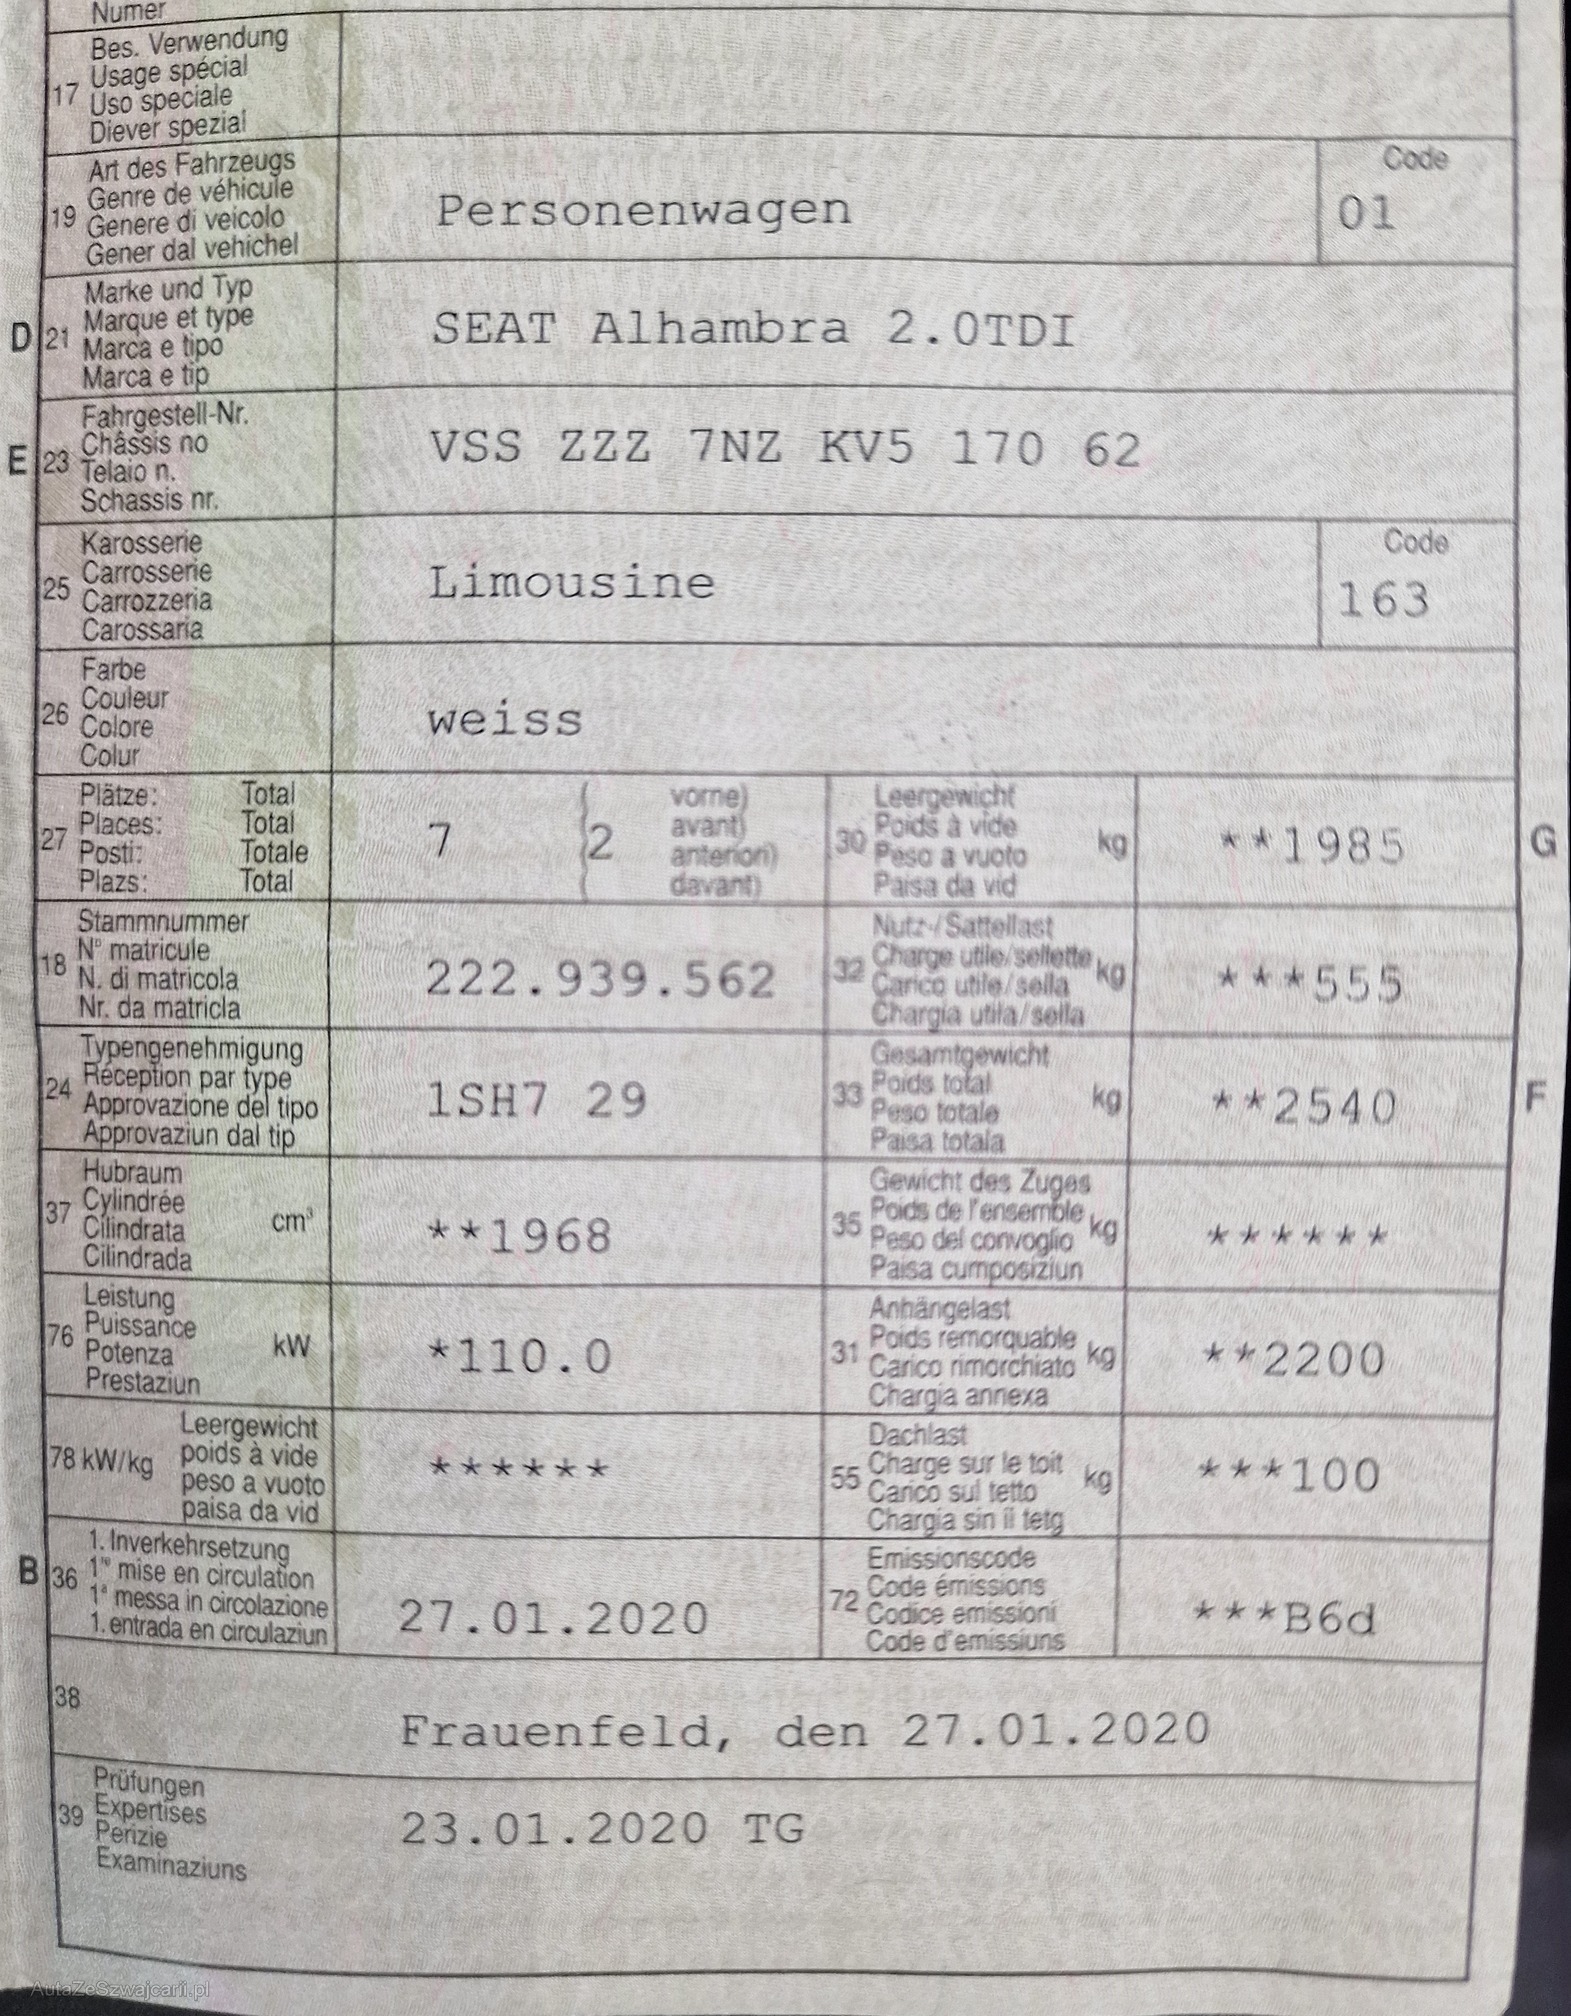 Numer
17 Bes. Verwendung
Usage spécial
Uso speciale
Diever spezial
19 Art des Fahrzeugs
Genre de véhicule
Genere di veicolo
Gener dal vehichel
Personenwagen
Code
01
D 21 Marke und Typ
Marque et type
Marca e tipo
Marca e tip
SEAT Alhambra 2.0TDI
E 23 Fahrgestell-Nr.
Châssis no
Telaio n.
Schassis nr.
VSS ZZZ 7NZ KV5 170 62
25 Karosserie
Carrosserie
Carrozzeria
Carossaria
Limousine
Code
163
26 Farbe
Couleur
Colore
Colur
weiss
27 Plätze: Total
Places: Total
Posti: Totale
Plazs: Total
7 (2 vorne)
avant)
anteriori)
davant)
30 Leergewicht
Poids à vide
Peso a vuoto
Paisa da vid
kg
**1985
G
18 Stammnummer
N° matricule
N. di matricola
Nr. da matricla
222.939.562
32 Nutz-/Sattellast
Charge utile/sellette
Carico utile/sella
Chargia utila/sella
kg
***555
24 Typengenehmigung
Réception par type
Approvazione del tipo
Approvaziun dal tip
1SH7 29
33 Gesamtgewicht
Poids total
Peso totale
Paisa totala
kg
**2540
F
37 Hubraum
Cylindrée
Cilindrata
Cilindrada
cm³
**1968
35 Gewicht des Zuges
Poids de l'ensemble
Peso del convoglio
Paisa cumposiziun
kg
******
76 Leistung
Puissance
Potenza
Prestaziun
kW
*110.0
31 Anhängelast
Poids remorquable
Carico rimorchiato
Chargia annexa
kg
**2200
78 kW/kg Leergewicht
poids à vide
peso a vuoto
paisa da vid
******
55 Dachlast
Charge sur le toit
Carico sul tetto
Chargia sin il tetg
kg
***100
B 36 1. Inverkehrsetzung
1re mise en circulation
1a messa in circolazione
1. entrada en circulaziun
27.01.2020
72 Emissionscode
Code émissions
Codice emissioni
Code d'emissiuns
***B6d
38
Frauenfeld, den 27.01.2020
39 Prüfungen
Expertises
Perizie
Examinaziuns
23.01.2020 TG
AutaZeSzwajcarii.pl